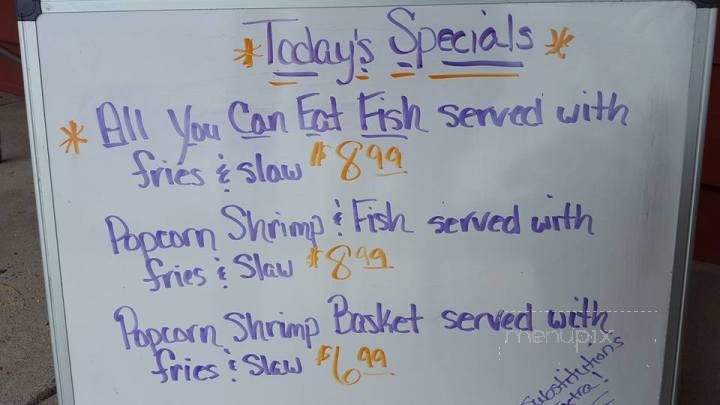 *Today's Specials*
* All You Can Eat Fish served with
fries & Slaw $8.99
Popcorn Shrimp & Fish served with
fries & Slaw $8.99
Popcorn Shrimp Basket served with
fries & Slaw $6.99
menupix
Substitutions
Extra!